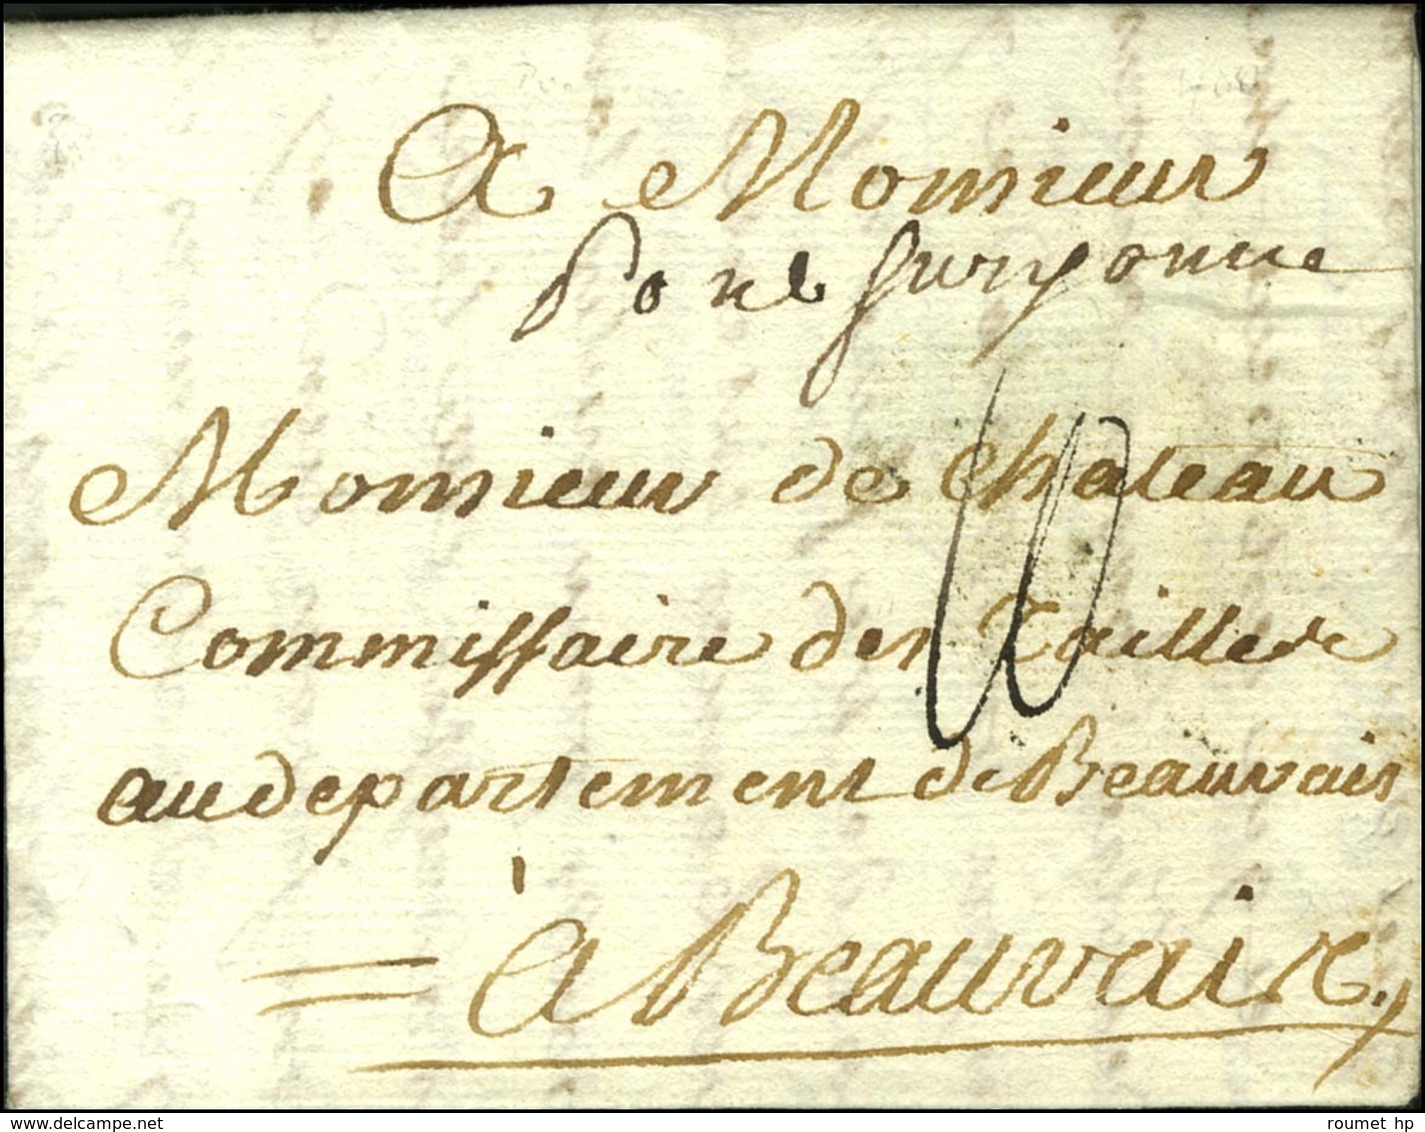 A Monsieur
Pont sur yonne
Monsieur de Chateau
Commissaire des Tailles
au departement de Beauvais
à Beauvais
www.delcampe.net
roumet hp